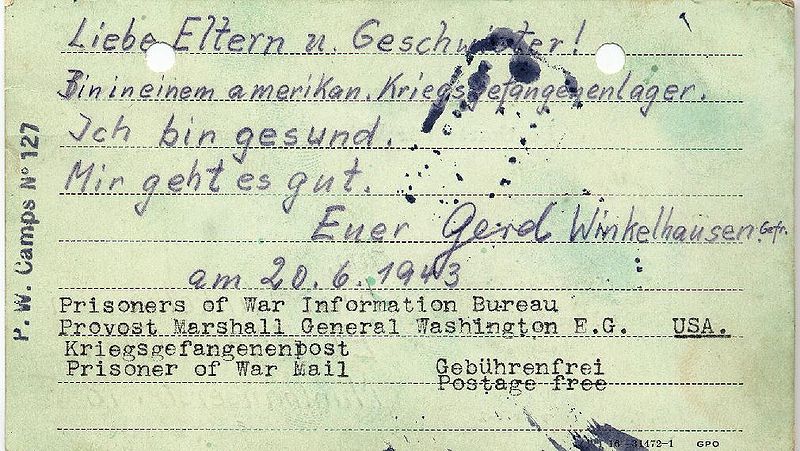 Liebe Eltern u. Geschwister!
Bin in einem amerikan. Kriegsgefangenenlager.
Ich bin gesund.
Mir geht es gut.
Euer Gerd Winkelhausen. Gefr.
am 20.6.1943
P.W. Camps Nº 127
Prisoners of War Information Bureau
Provost Marshall General Washington E.G. USA.
Kriegsgefangenenpost
Prisoner of War Mail Gebührenfrei
Postage free
16-31472-1 GPO